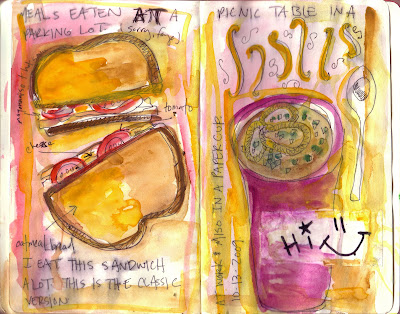 MEALS EATEN AT A
PICNIC TABLE IN A
PARKING LOT (sorry,
mayonnaise
tomato
cheese
oatmeal bread
I EAT THIS SANDWICH
A LOT THIS IS THE CLASSIC
VERSION
AT WORK ALSO IN A PAPER CUP
10.13.2009
Hi